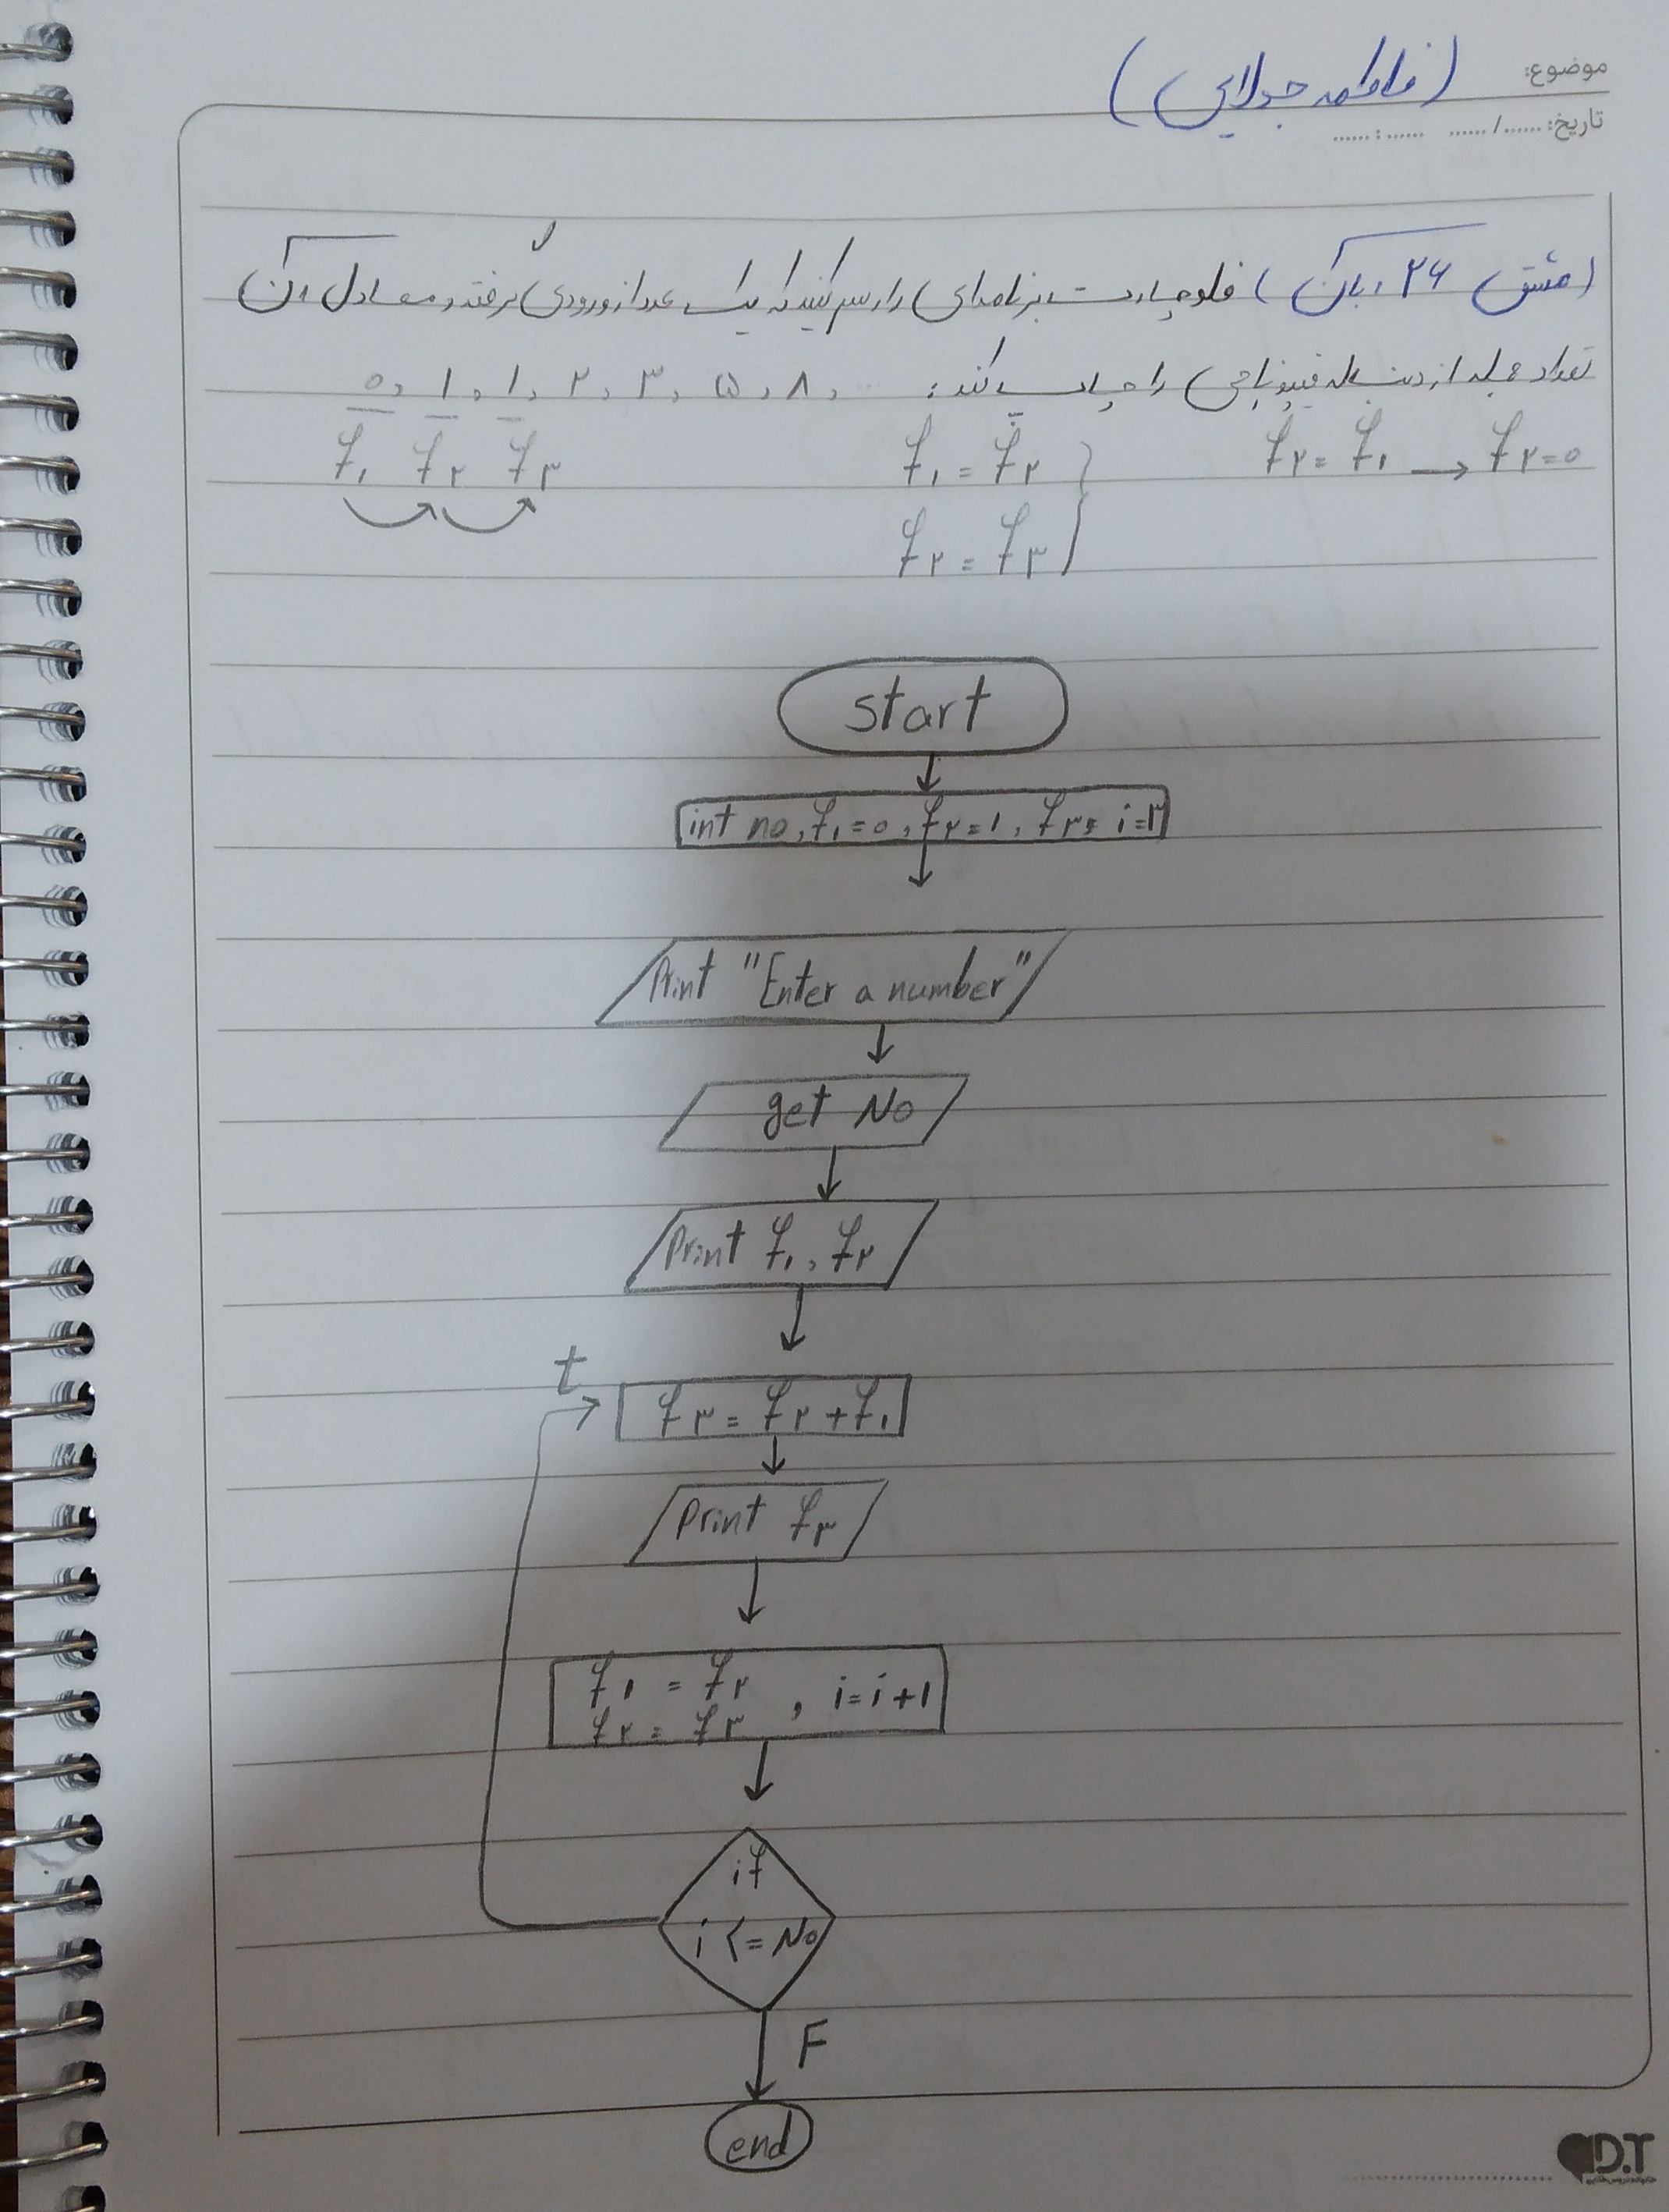 موضوع:
(فاطمه جولایی)
تاریخ: ....../ ...... ...... : ......
(مشق ۲۶ ، بان ک) فلوچارت برنامه‌ای را رسم کنید که یک عدد از ورودی گرفته و معادل آن
تعداد جمله از دنباله فیبوناچی را چاپ کند: ۰، ۱، ۱، ۲، ۳، ۵، ۸، ...
f۱ f۲ f۳
f۱ = f۲
f۲ = f۱ → f۲=۰
f۲ = f۳
start
int no, f۱=۰, f۲=۱, f۳, i=۳
Print "Enter a number"
get No
Print f۱, f۲
t
f۳ = f۲ + f۱
Print f۳
f۱ = f۲ , i=i+۱
f۲ = f۳
if
i <= No
F
end
D.T